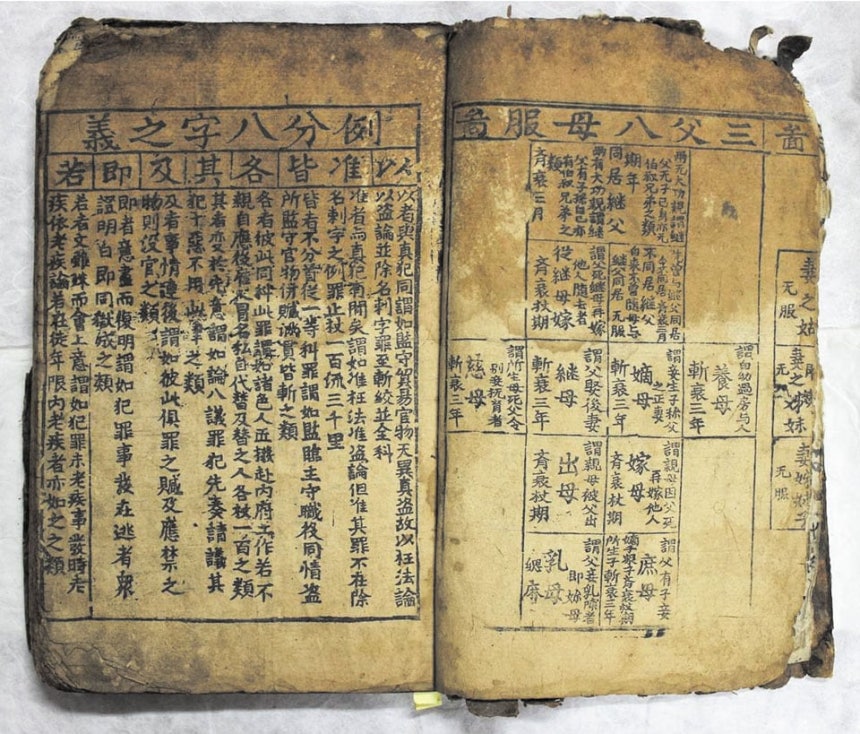 啚
三父八母服啚
妻之姑
无服
妻之姊妹
无服
无服
兩无大功親謂繼
父无子己身亦无
伯叔兄弟之類
期年
同居繼父
兩有大功親謂繼
父有子孫自己亦
有伯叔兄弟之
類
齊衰三月
繼父同居
齊衰三月
不同居繼父
自來不曾隨母与
繼父同居 无服
謂父死繼母再嫁
他人隨去者
從繼母嫁
齊衰杖期
謂自幼過房与人
養母
斬衰三年
謂妾生子称父
之正妻
嫡母
斬衰三年
謂父娶後妻
繼母
斬衰三年
謂所生母死父令
別妾抚育者
慈母
斬衰三年
謂親母因父死
再嫁他人
嫁母
齊衰杖期
謂親母被父出
出母
齊衰杖期
謂父有子妾
庶母
嫡子眾子齊衰杖期
所生子斬衰三年
謂父妾乳哺者
即妳母
乳母
緦麻
例分八字之義
以 准 皆 各 其 及 即 若
以者與真犯同謂如監守貿易官物无異真盗故以枉法論
以盗論並除名刺字罪至斬絞並全科
准者与真犯有間矣謂如准枉法准盗論但准其罪不在除
名刺字之例罪止杖一百流三千里
皆者不分首從一等科罪謂如監臨主守職役同情盗
所監守官物併贓滿貫皆斬之類
各者彼此同科此罪謂如諸色人匠撥赴内府工作若不
親自應役雇人冒名私自代替及替之人各杖一百之類
其者变於先意謂如論八議罪犯先奏請議其
犯十惡不用此事之類
及者事情連後謂如彼此俱罪之贓及應禁之
物則没官之類
即者意盡而復明謂如犯罪事發在逃者衆
證明白即同獄成之類
若者文雖殊而會上意謂如犯罪未老疾事發時老
疾依老疾論若在徒年限内老疾者亦如之之類